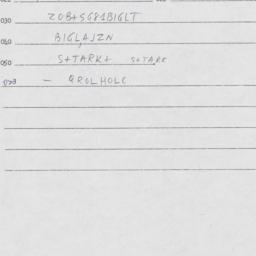 030 ZOB+SG81BIGLT
040 BIGLAJZN
050 S+TARK+ S+TARK
— GROLHOLC